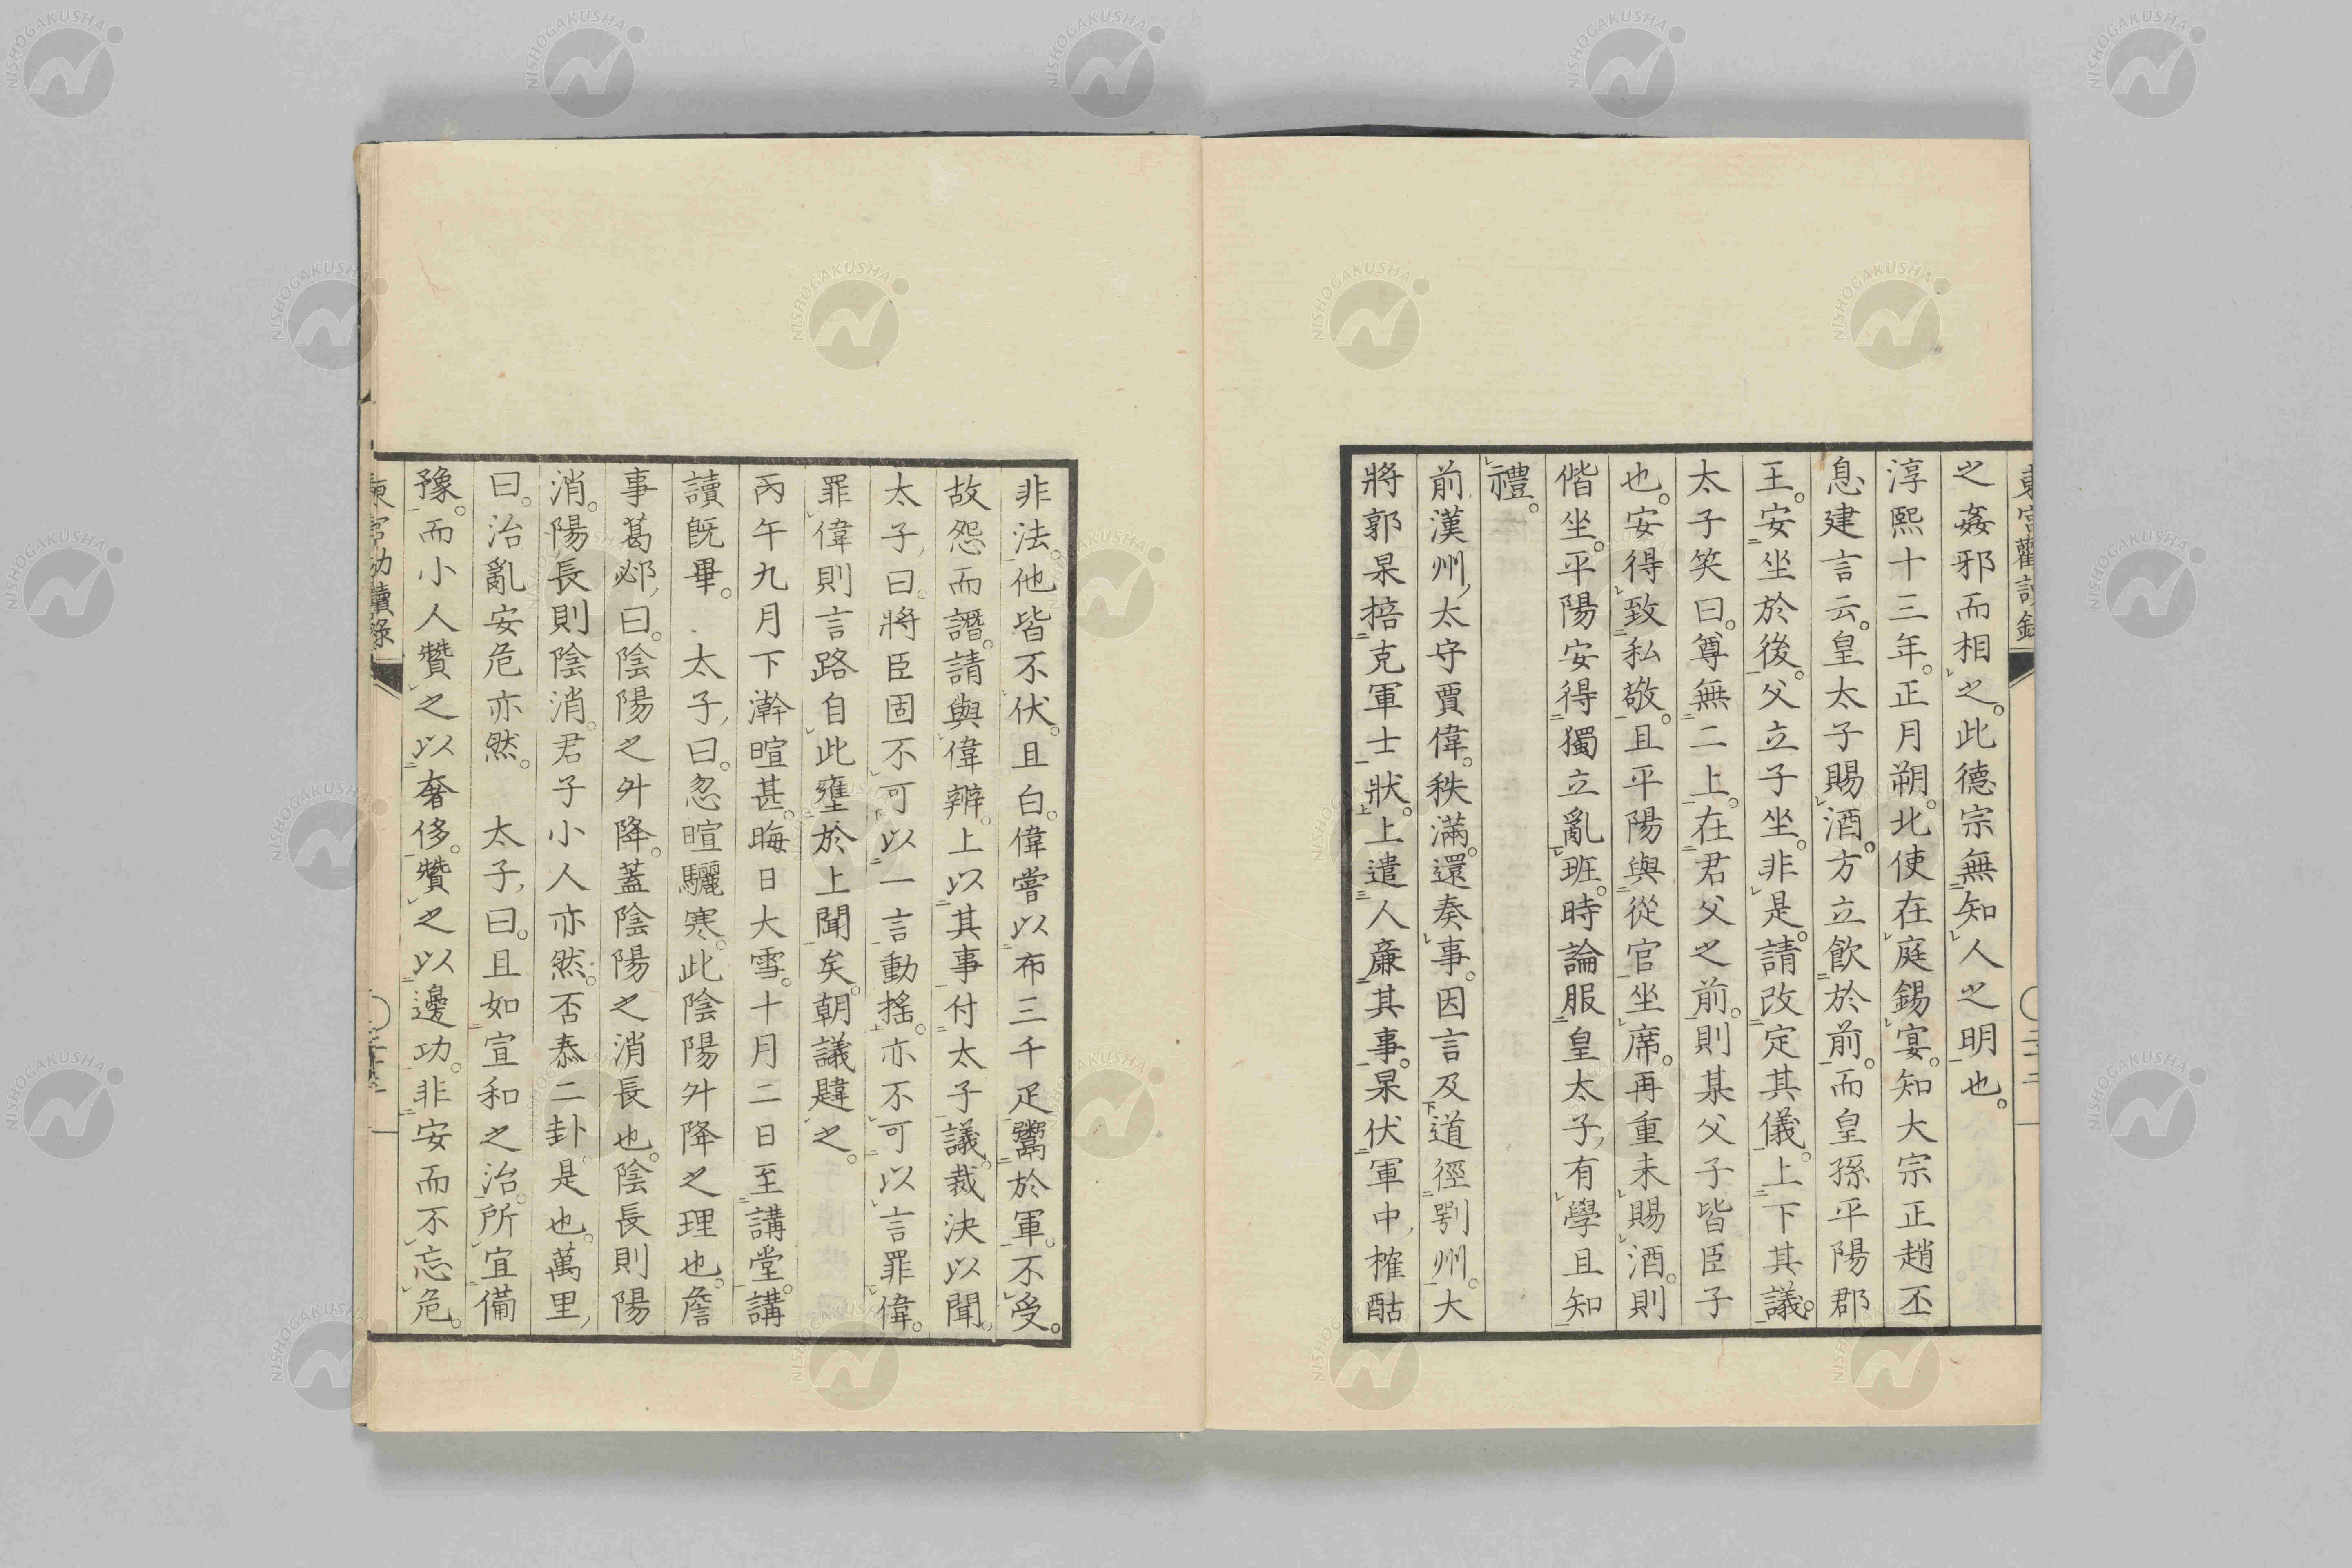 之姦邪而相之。此德宗無知人之明也。
淳熙十三年。正月朔。北使在庭錫宴。知大宗正趙丕
息建言云。皇太子賜酒。方立飲於前。而皇孫平陽郡
王。安坐於後。父立子坐。非是。請改定其儀。上下其議。
太子笑曰。尊無二上。在君父之前。則某父子皆臣子
也。安得致私敬。且平陽與從官坐席。再重未賜酒。則
偕坐。平陽安得獨立亂班。時論服皇太子有學且知
禮。
前漢州太守賈偉。秩滿。還奏事。因言及道徑鄂州。大
將郭杲掊克軍士狀。上遣人廉其事。杲伏軍中榷酤
非法。他皆不伏。且白。偉嘗以布三千疋鬻於軍。不受。
故怨而譖。請與偉辨。上以其事付太子議。裁決以聞。
太子曰。將臣固不可以一言動搖。亦不可以言罪偉。
罪偉則言路自此壅於上聞矣。朝議韙之。
丙午九月下澣暄甚。晦日大雪。十月二日至講堂。講
讀既畢。太子曰。忽暄驪寒。此陰陽升降之理也。詹
事葛邲曰。陰陽之升降。蓋陰陽之消長也。陰長則陽
消。陽長則陰消。君子小人亦然。否泰二卦是也。萬里
曰。治亂安危亦然。太子曰。且如宣和之治。所宜備
豫。而小人贊之以奢侈。贊之以邊功。非安而不忘危。
東宮勸讀錄